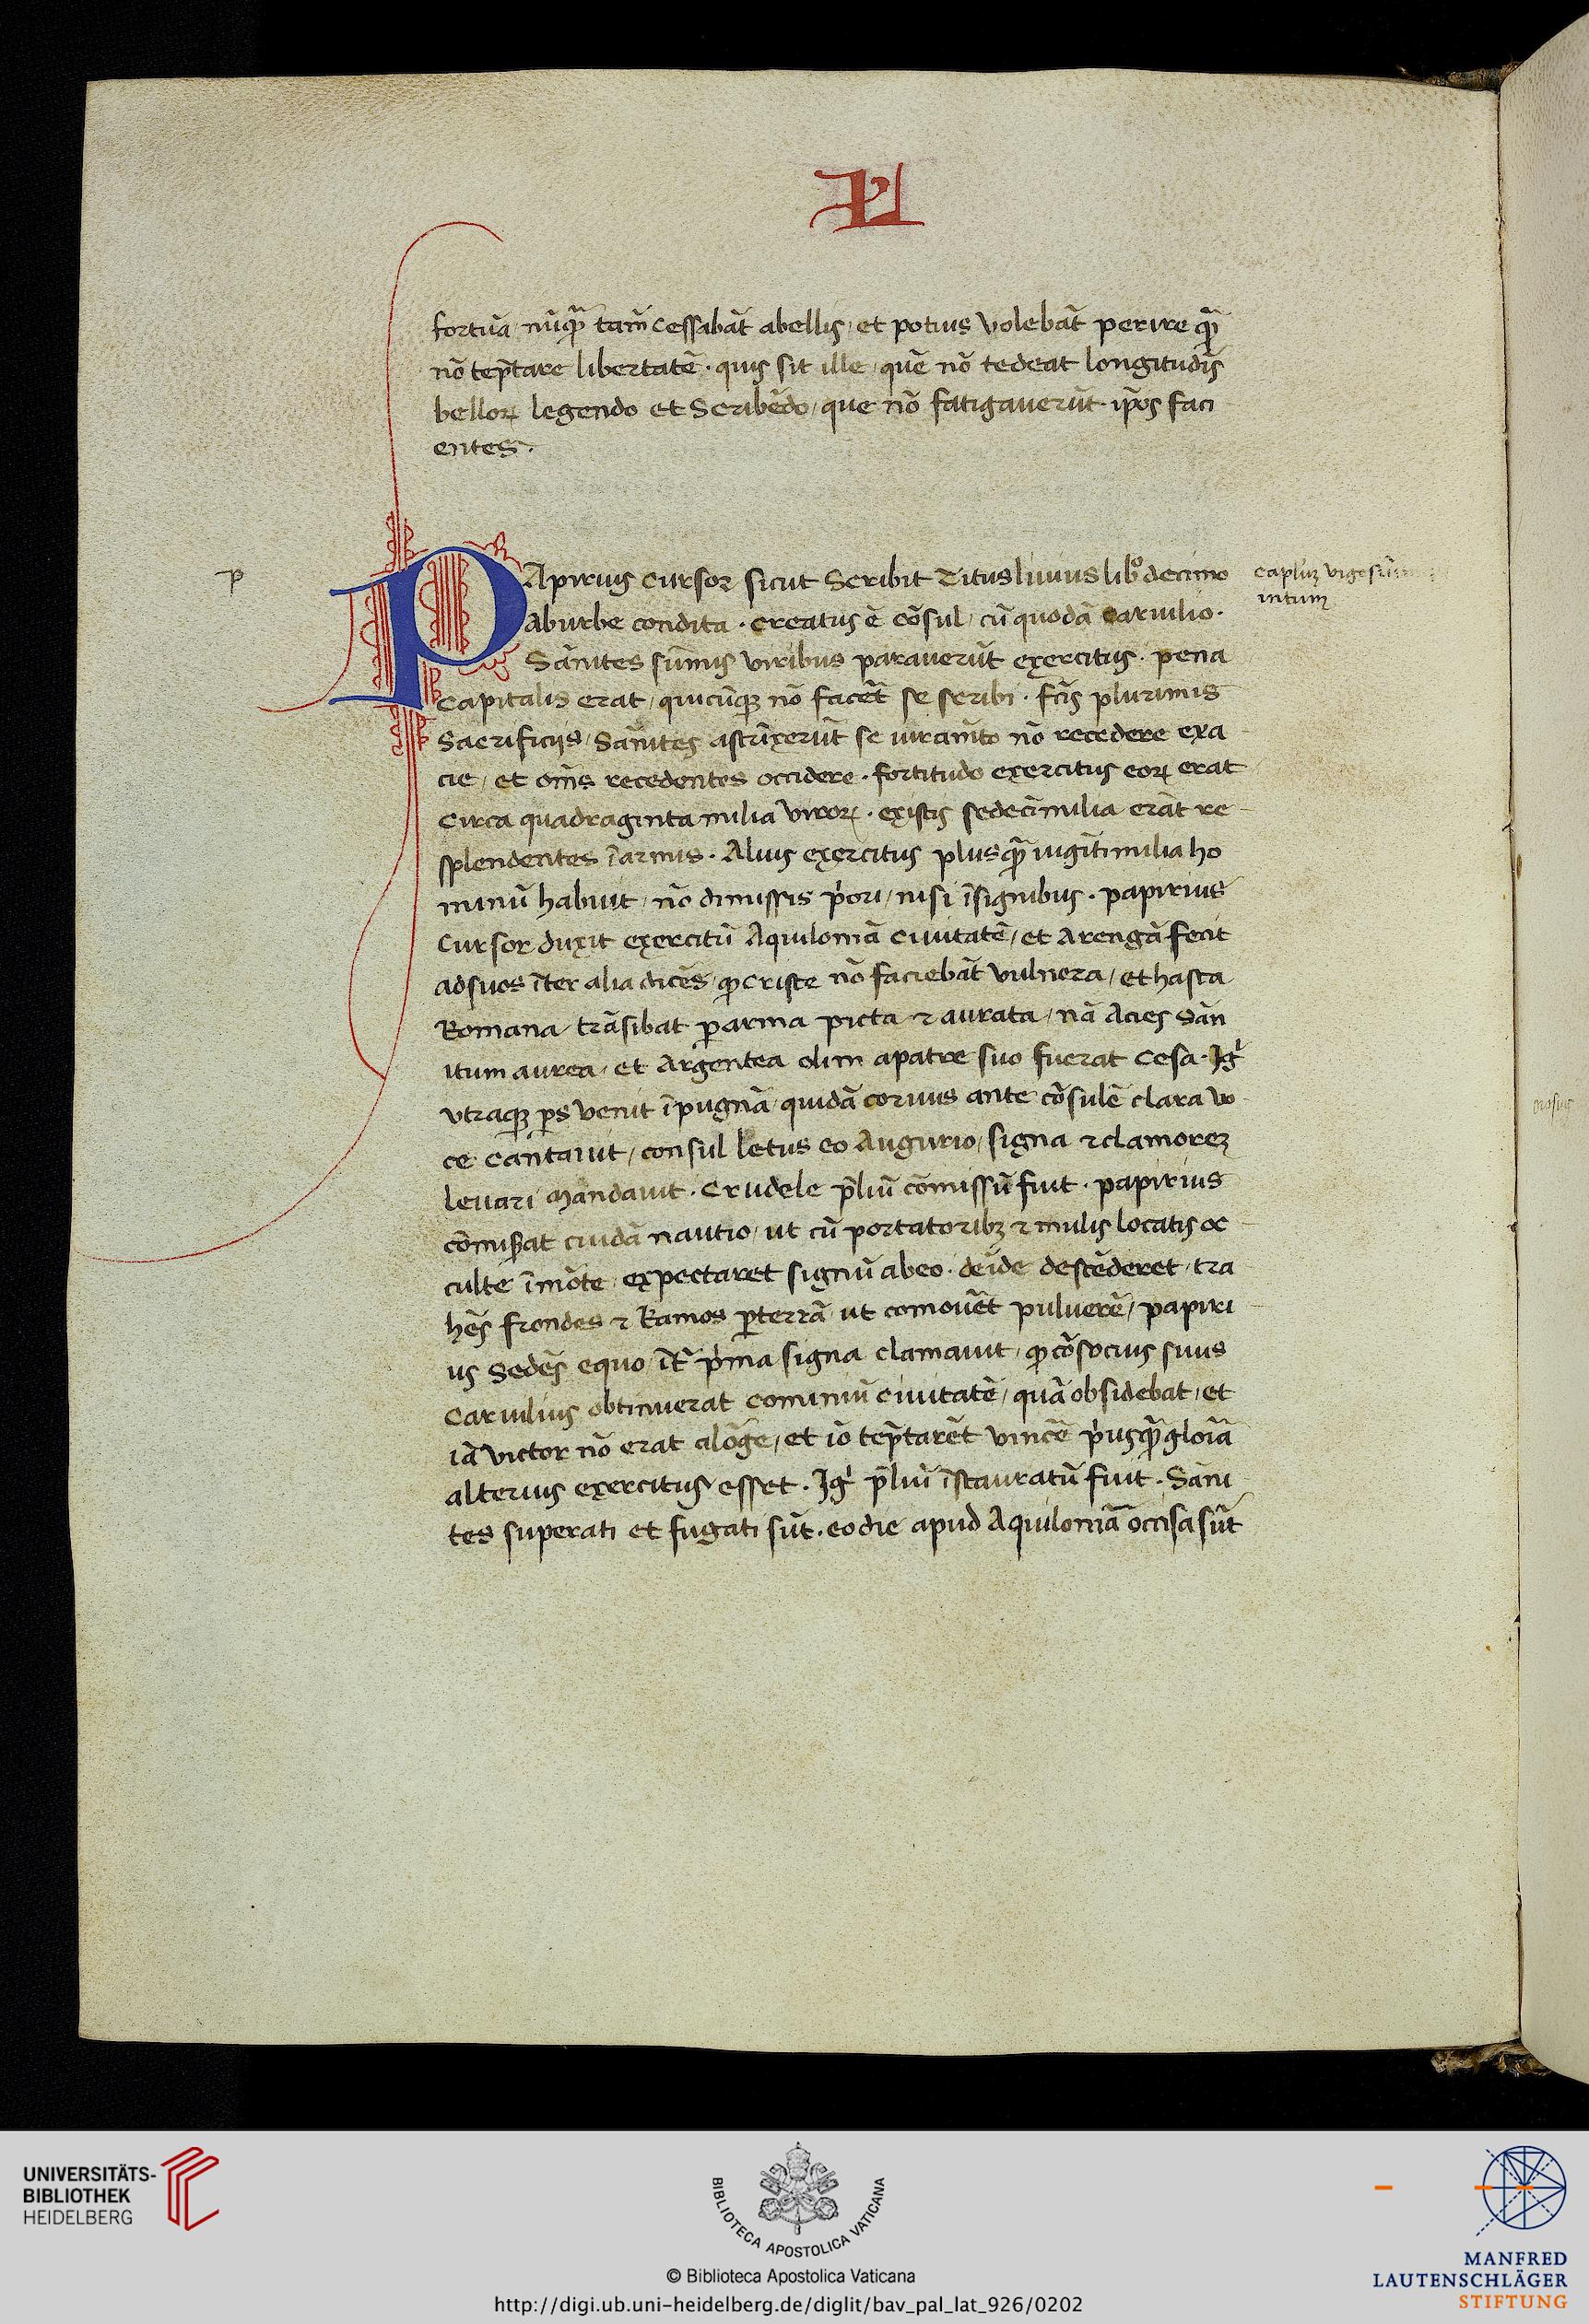 PL
fortuā nūqȝ̄ tam̄ cessabāt abellis / et potius volebāt perire qȝ̄
nō tēptare libertatē · quis sit ille / quē nō tedeat longitudīs
belloꝝ legendo et Scribēdo / que nō fatigauerūt ip̄os faci
entes ·
p
PApirius cursor sicut Scribit Titus liuius libº decimo
aburbe condita · creatus ē cōsul / cū quodā caruilio ·
Sānites sūmis viribus parauerūt exercitus · pena
capitalis erat / quicūqȝ nō facēt se scribi · fcīs plurimis
Sacrificijs / Sānites astrīxerūt se iuramīto nō recedere exa
cie / et om̄s recedentes occidere · fortitudo exercitus eoꝝ erat
circa quadraginta milia viroꝝ · existis sedecī milia erāt re
splendentes ī armis · Alius exercitus plusqȝ̄ uigīti milia ho
minū habuit / nō dimissis p̄ori / nisi īsignibus · papirius
Cursor duxit exercitū Aquiloniā ciuitatē / et Arengā fecit
adsuos īter alia dicēs / ꝙ criste nō faciebāt vulnera / et hasta
Romana trāsibat ꝑ arma picta ⁊ aurata / nā Acies Sān
itum aurea / et Argentea olim apatre suo fuerat cesa · Igͥ
vtraqȝ ꝑs venit ī pugnā / quidā coruus ante cōsulē clara vo
ce cantauit / consul letus eo Augurio / signa ⁊ clamoreȝ
leuari mandauit · Crudele p̄liū cōmissū fuit · papirius
cōmiserat cuidā nautio / ut cū portatoribȝ ⁊ mulis locatis oc
culte ī mōte / expectaret signū abeo · deīde descēderet / tra
hēs frondes ⁊ Ramos ꝑ terrā ut comouēt puluerē / papiri
us Sedēs equo īt̄ p̄ma signa clamauit / ꝙ cōsocius suus
Caruilius obtinuerat cominiū ciuitatē / quā obsidebat / et
iā victor nō erat alōge / et iō tēptarēt vincē p̄usqȝ̄ gloīa
alterius exercitus esset · Igͥ p̄liū īstauratū fuit · Sāni
tes superati et fugati sūt · eodie apud Aquiloniā occisa sūt
capłm vigesim
intum
UNIVERSITÄTS-
BIBLIOTHEK
HEIDELBERG
BIBLIOTECA APOSTOLICA VATICANA
© Biblioteca Apostolica Vaticana
http://digi.ub.uni-heidelberg.de/diglit/bav_pal_lat_926/0202
MANFRED
LAUTENSCHLÄGER
STIFTUNG